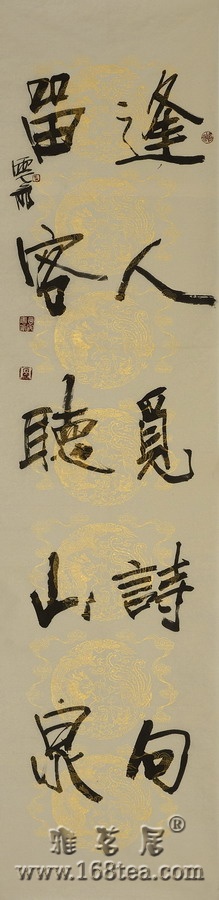 逢人覓詩句
留客聽山泉
雅茗居®
www.168tea.com